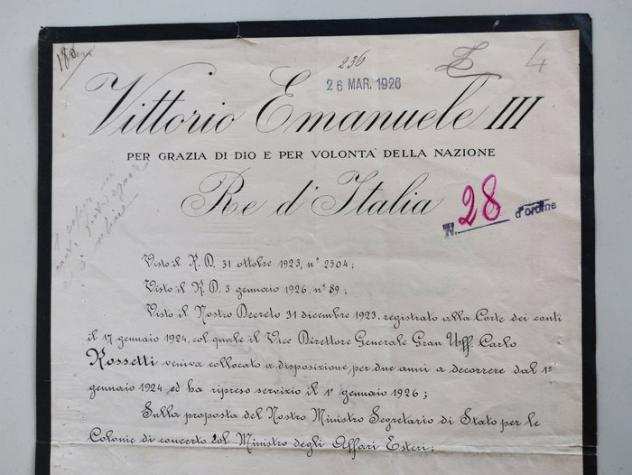 236
4
26 MAR. 1926
Vittorio Emanuele III
PER GRAZIA DI DIO E PER VOLONTA' DELLA NAZIONE
Re d'Italia
N. 28 d'ordine
Visto il R. D. 31 ottobre 1923, n° 2504;
Visto il R D. 3 gennaio 1926, n° 89;
Visto il Nostro Decreto 31 dicembre 1923, registrato alla Corte dei conti
il 17 gennaio 1924, col quale il Vice Direttore Generale Gran Uff Carlo
Rossetti veniva collocato a disposizione per due anni a decorrere dal 1°
gennaio 1924, ed ha ripreso servizio il 1° gennaio 1926;
Sulla proposta del Nostro Ministro Segretario di Stato per le
Colonie di concerto col Ministro degli Affari Esteri;